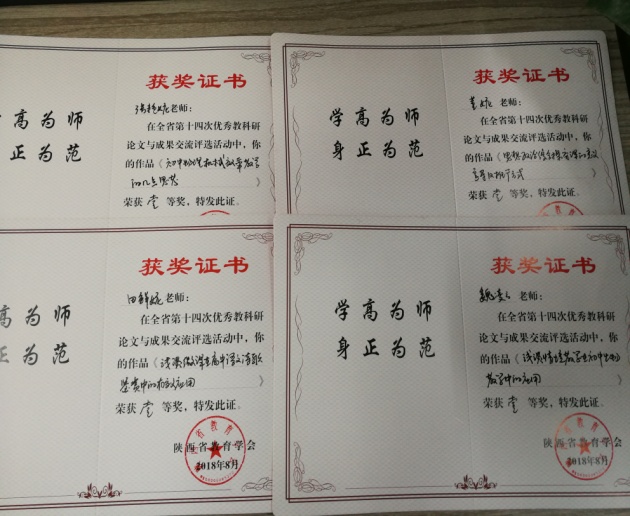 高为师
正为范
获奖证书
老师:
在全省第十四次优秀教科研
论文与成果交流评选活动中,你
的作品《初中物理机械效率教学
的几点思考》
荣获 等奖,特发此证。
学高为师
身正为范
获奖证书
老师:
在全省第十四次优秀教科研
论文与成果交流评选活动中,你
的作品《思想政治
荣获 等奖,特发此证。
高为师
正为范
获奖证书
田 老师:
在全省第十四次优秀教科研
论文与成果交流评选活动中,你
的作品《浅谈微课在高中语文诗歌
鉴赏中的 应用》
荣获 等奖,特发此证。
陕西省教育学会
2018年8月
学高为师
身正为范
获奖证书
魏 老师:
在全省第十四次优秀教科研
论文与成果交流评选活动中,你
的作品《浅谈情境教学在初中生物
教学中的应用》
荣获 等奖,特发此证。
陕西省教育学会
2018年8月